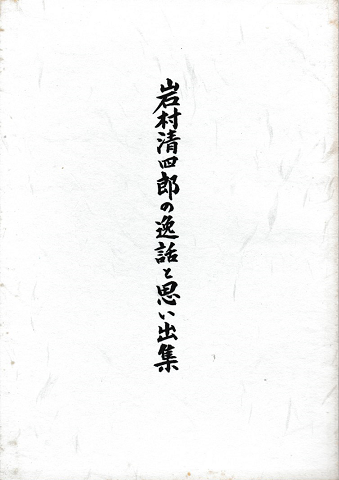 岩村清四郎の逸話と思い出集